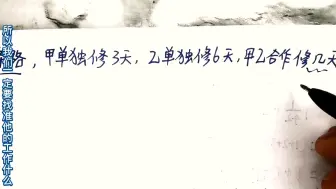 路，甲单独修3天，乙单独修6天，甲乙合作修几天
所以我们一定要找准他的工作什么